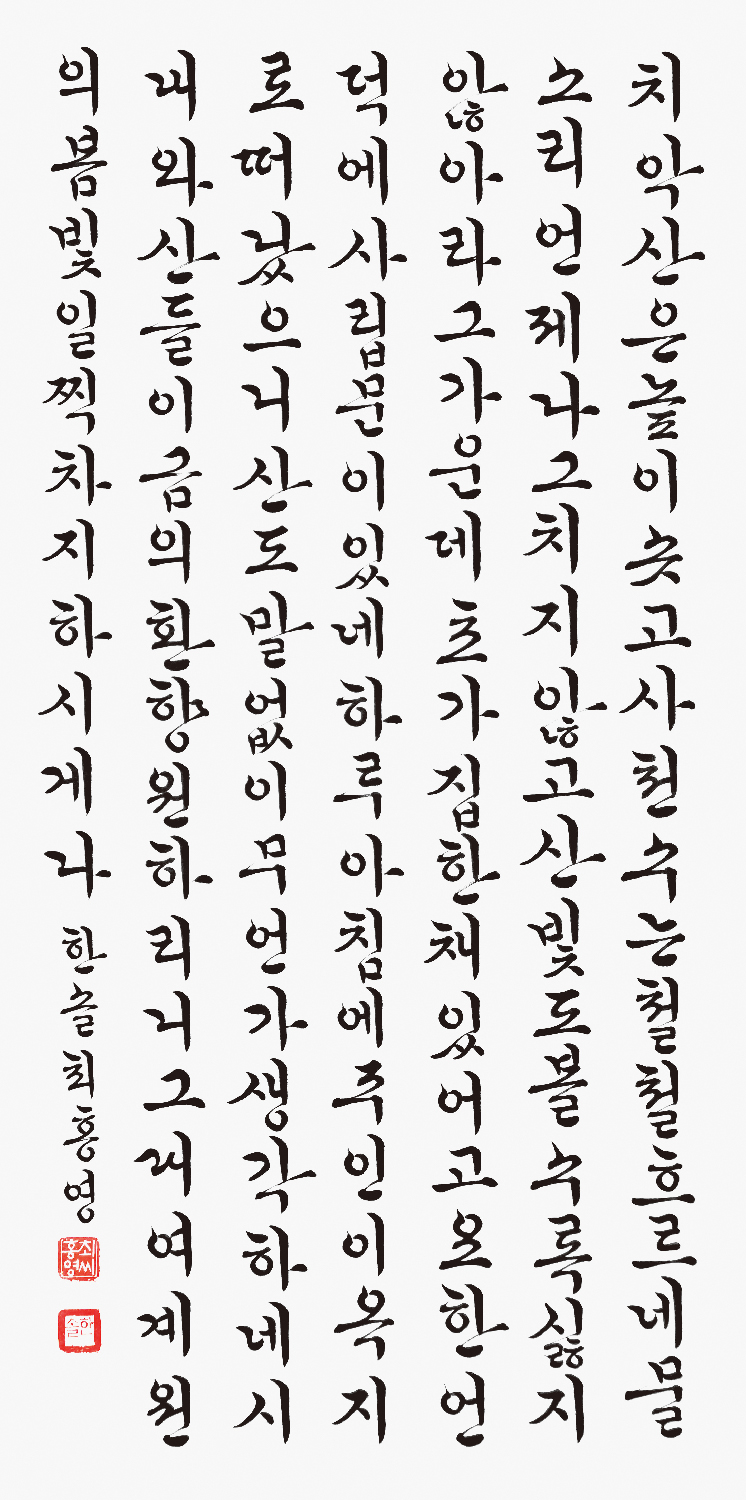 치악산은높이솟고사천수는철철흐르네물
소리언제나그치지않고산빛도볼수록싫지
않아라그가운데초가집한채있어고요한언
덕에사립문이있네하루아침에주인이옥지
로떠났으니산도말없이무언가생각하네시
내와산들이금의환향원하리니그대여계원
의봄빛일찍차지하시게나 한솔최홍영
최씨홍영
한솔